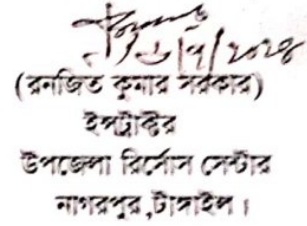 (রনজিত কুমার সরকার)
ইন্সট্রাক্টর
উপজেলা রিসোর্স সেন্টার
নাগরপুর,টাঙ্গাইল।